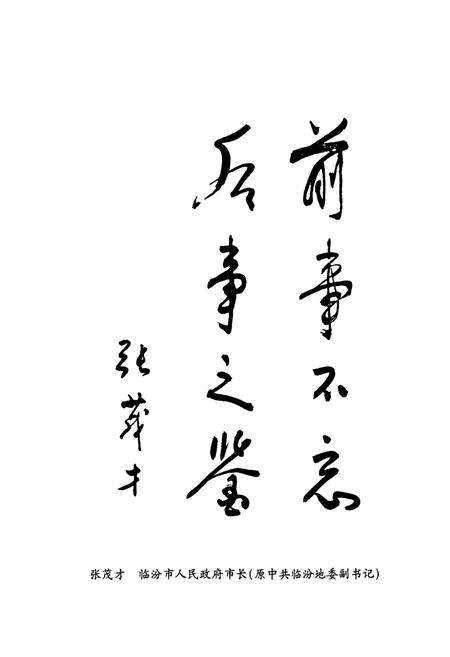 前事不忘
后事之鉴
张茂才
张茂才 临汾市人民政府市长(原中共临汾地委副书记)